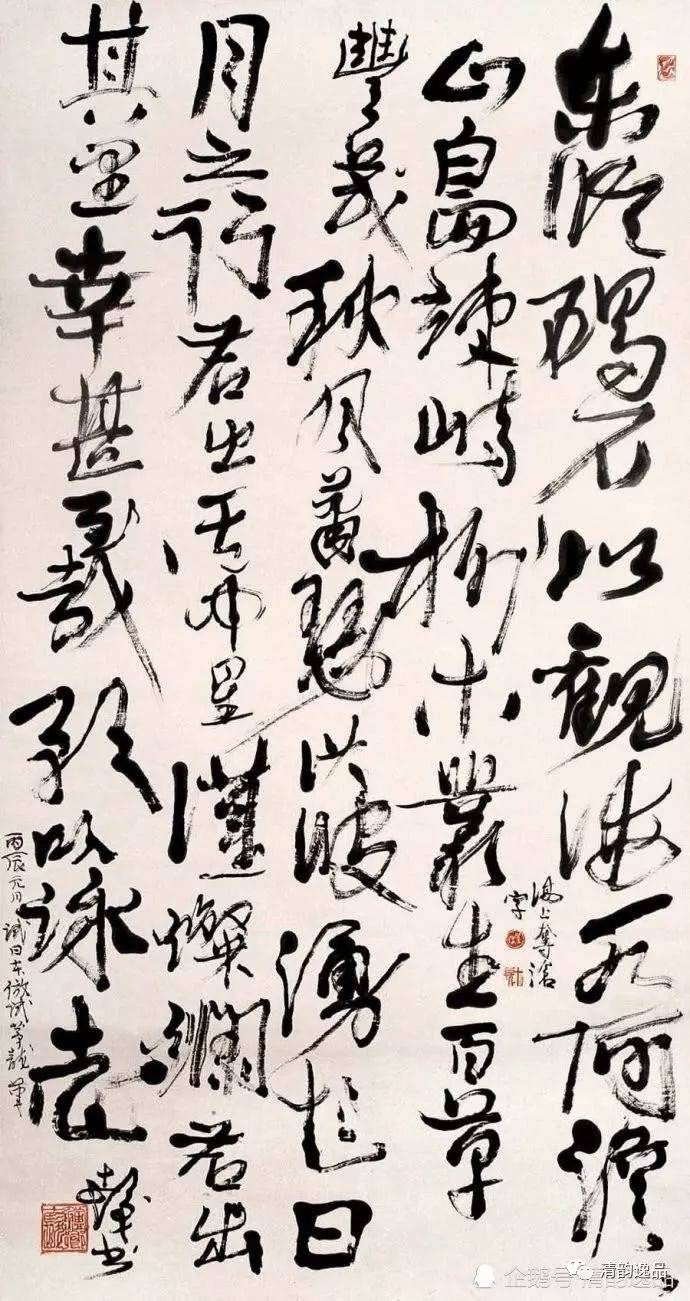 東臨碣石以觀海水何澹々
山島竦峙樹木叢生百草
豐茂秋風蕭瑟洪波湧起日
月之行若出其中星漢燦爛若出
其里幸甚至哉歌以詠志
海上奪滄
字
丙辰元月試日本
書
企鹅号 清韵逸品
清韵逸品